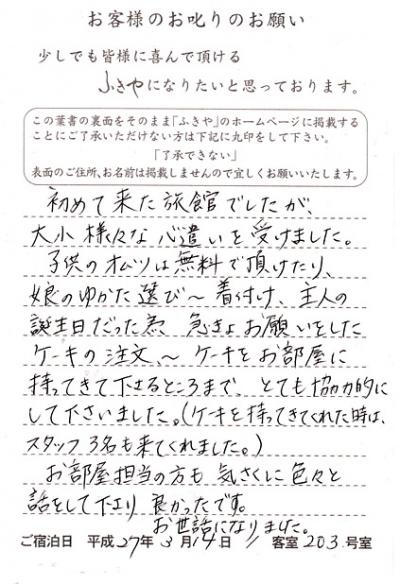 お客様のお叱りのお願い
少しでも皆様に喜んで頂ける
ふきやになりたいと思っております。
この葉書の裏面をそのまま「ふきや」のホームページに掲載する
ことにご了承いただけない方は下記に丸印をして下さい。
「了承できない」
表面のご住所、お名前は掲載しませんので宜しくお願いいたします。
初めて来た旅館でしたが、
大小様々な心遣いを受けました。
子供のオムツは無料で頂けたり、
娘のゆかた選び〜着付け、主人の
誕生日だった為、急きょお願いをした
ケーキの注文、〜ケーキをお部屋に
持ってきて下さるところまで、とても協力的に
して下さいました。(ケーキを持ってきてくれた時は、
スタッフ3名も来てくれました。)
お部屋担当の方も気さくに色々と
話をして下さり良かったです。
お世話になりました。
ご宿泊日 平成27年3月14日 // 客室203.号室